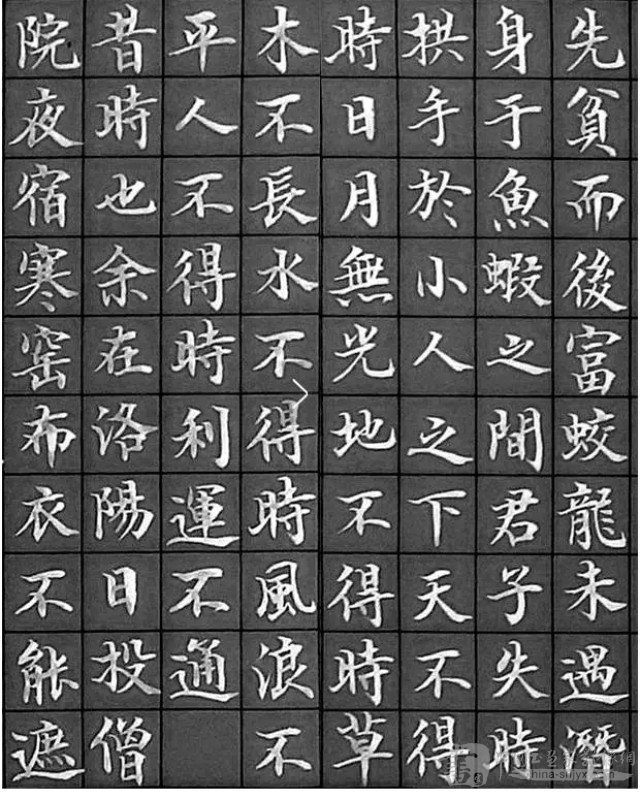 先貧而後富蛟龍未遇潛
身于魚蝦之間君子失時
拱手於小人之下天不得
時日月無光地不得時草
木不長水不得時風浪不
平人不得時利運不通
昔時也余在洛陽日投僧
院夜宿寒窑布衣不能遮
china-shjyx.com